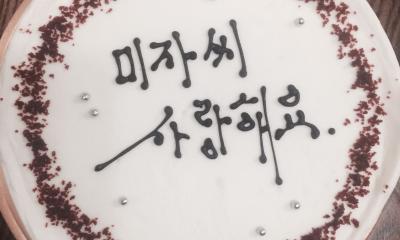 미자씨
사랑해용.